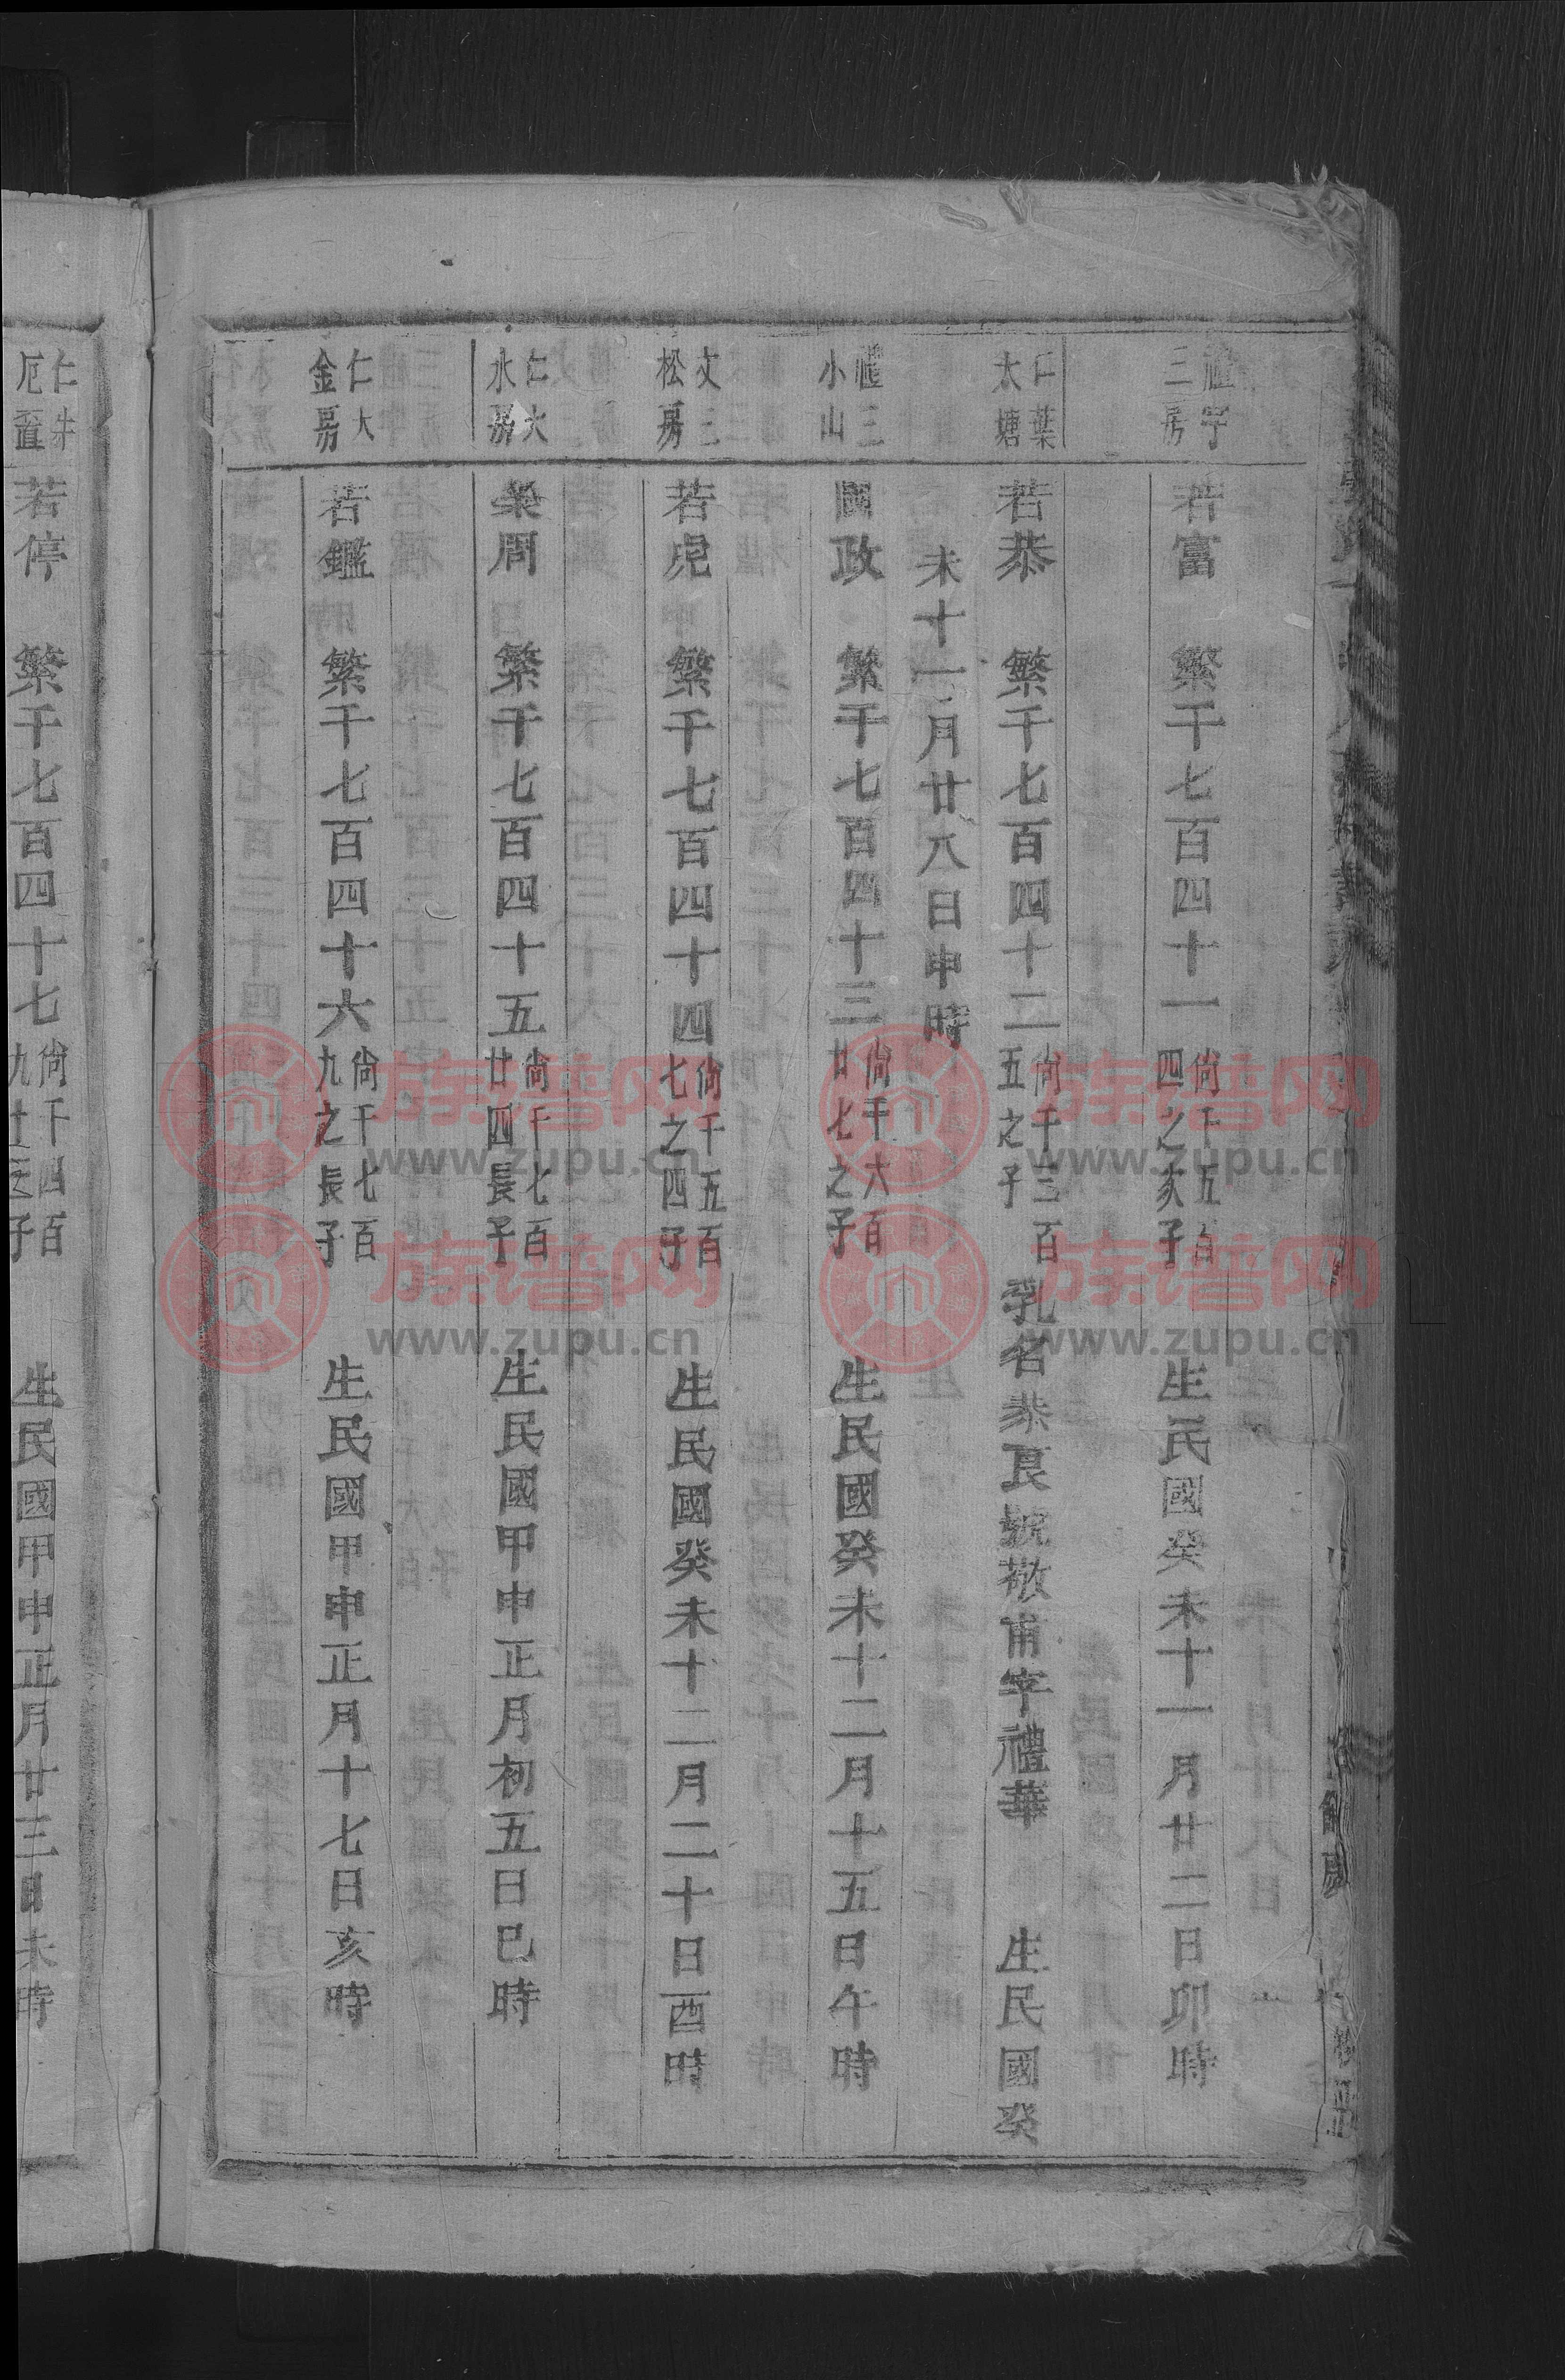 三房
若富 繁千七百四十一 尙千五百四之亥子 生民國癸未十一月廿二日卯時
仁葉太塘
若恭 繁千七百四十二 尙千三百五之子 乳名恭良號敬甫字禮華 生民國癸
未十一月廿八日申時
禮三小山
國政 繁千七百四十三 尙千六百廿七之子 生民國癸未十二月十五日午時
文三松房
若虎 繁千七百四十四 尙千五百七之四子 生民國癸未十二月二十日酉時
仁大水房
榮周 繁千七百四十五 尙千七百廿四長子 生民國甲申正月初五日巳時
仁大金房
若鑑 繁千七百四十六 尙千七百九之長子 生民國甲申正月十七日亥時
若停 繁千七百四十七 尙千四百九十之子 生民國甲申正月廿三日未時
族谱网
www.zupu.cn
族谱网
www.zupu.cn
族谱网
www.zupu.cn
族谱网
www.zupu.cn